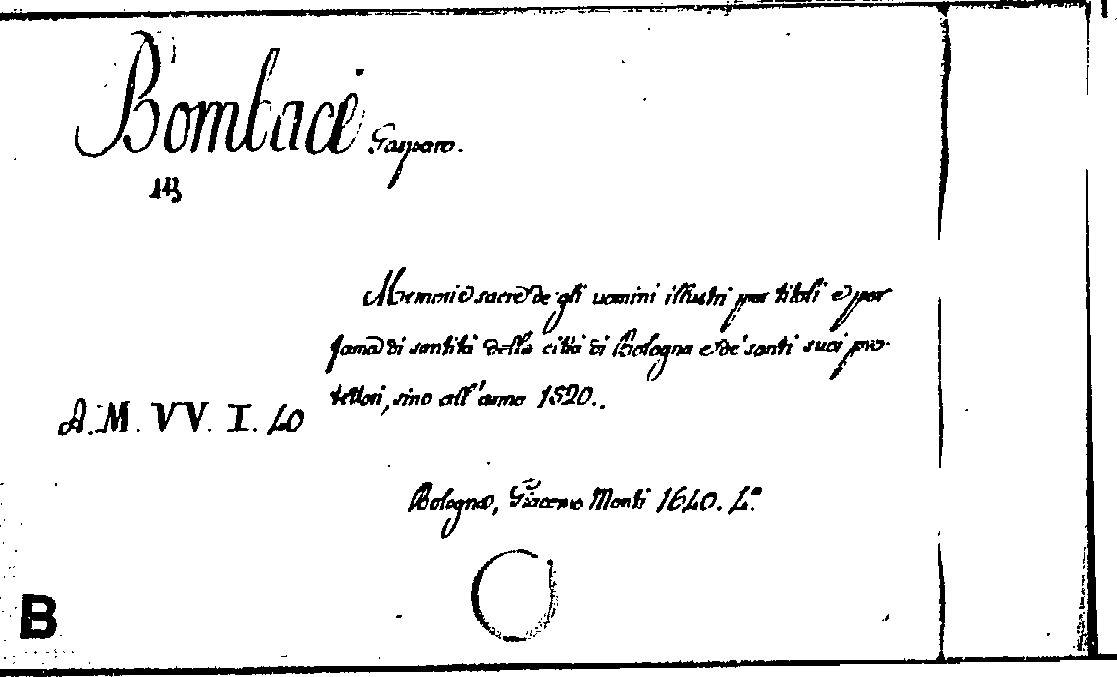 Bombaci Gasparo.
113
Memorie sacre de gli uomini illustri per titoli e per
fama di santità della città di Bologna e de' santi suoi pro-
tettori, sino all'anno 1520..
A.M. VV. I. 40
Bologna, Giacomo Monti 1640. 4.°
B